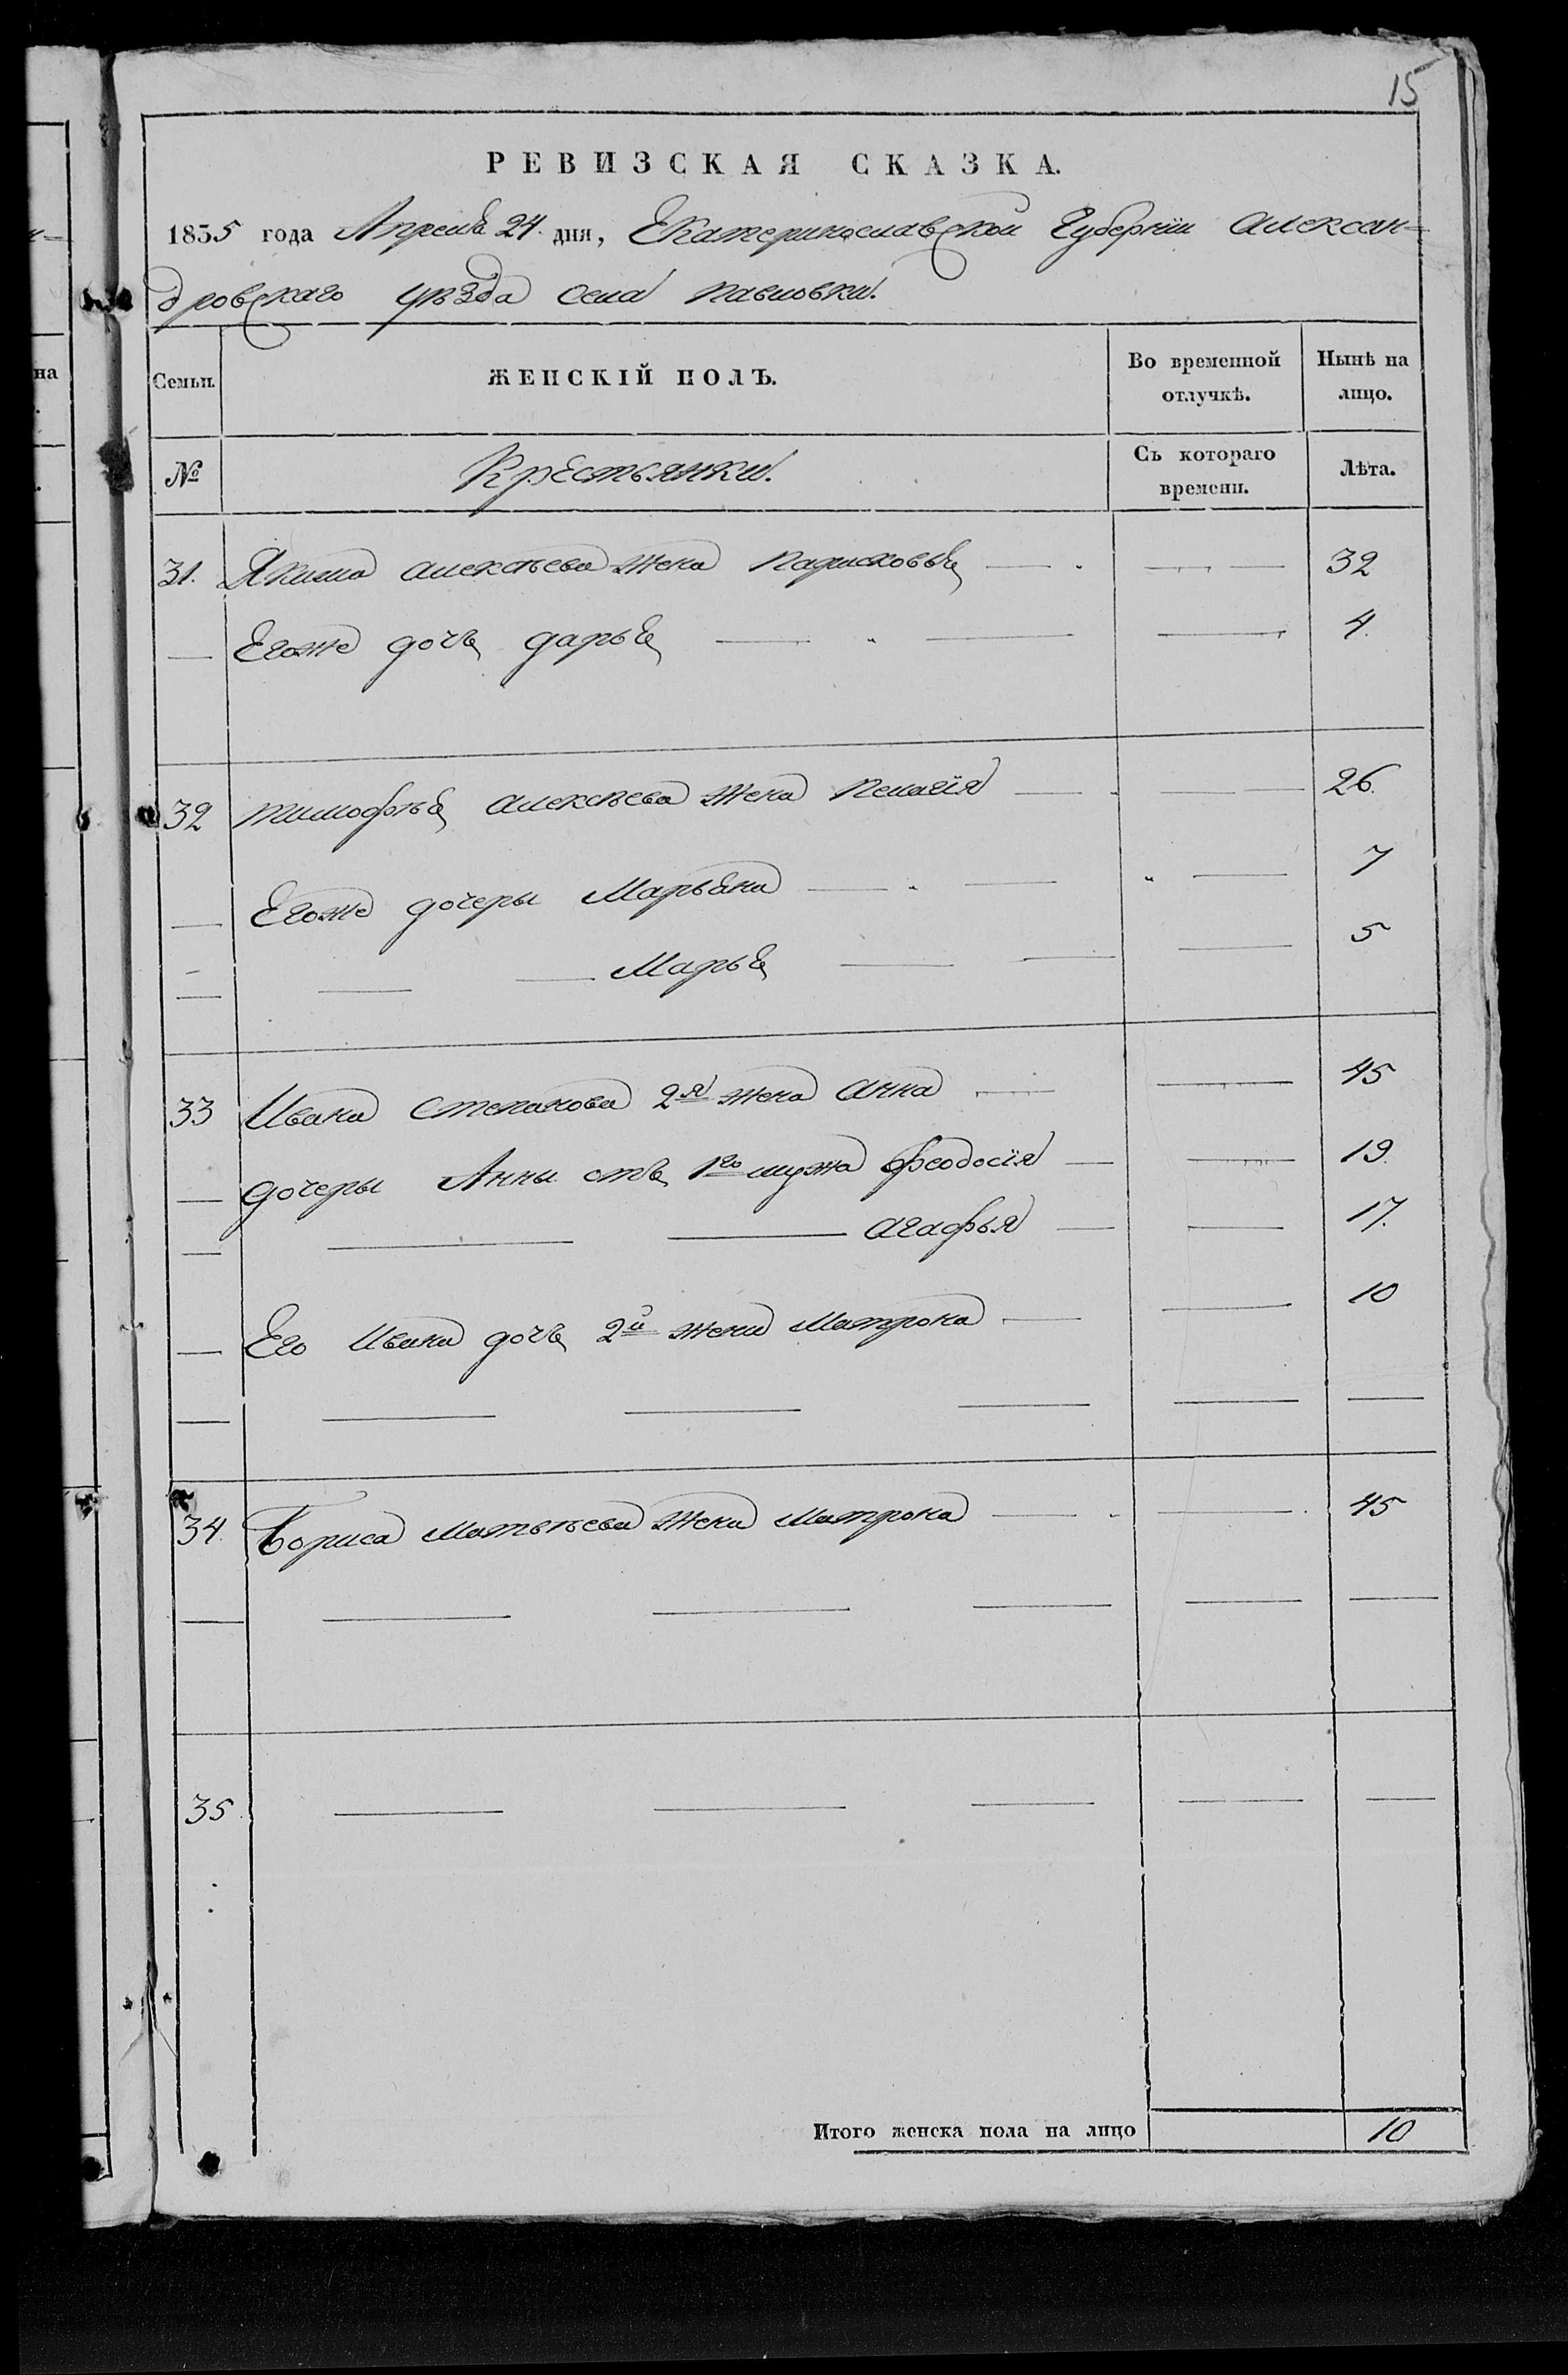 15
РЕВИЗСКАЯ СКАЗКА.
1835 года Апреля 24. дня, Екатеринославской Губернїи Алексан=
дровскаго уѣзда села павловки.
Семьи.
ЖЕНСКІЙ ПОЛЪ.
Во временной отлучкѣ.
Нынѣ на лицо.
№
Крестьянки.
Съ котораго времени.
Лѣта.
31. Якима алексѣева жена 32
Егоже дочь дарья 4.
32 тимофѣя алексѣева жена пелагїя 26.
Егоже дочеры Марьяна 7
Марья 5
33 Ивана Степанова 2я жена анна 45
дочеры Анны отъ 1го мужа феодосїя 19.
агафья 17.
Его Ивана дочь 2й жены матрона 10
34. Бориса матвѣева жена матрона 45
35.
Итого женска пола на лицо 10
на